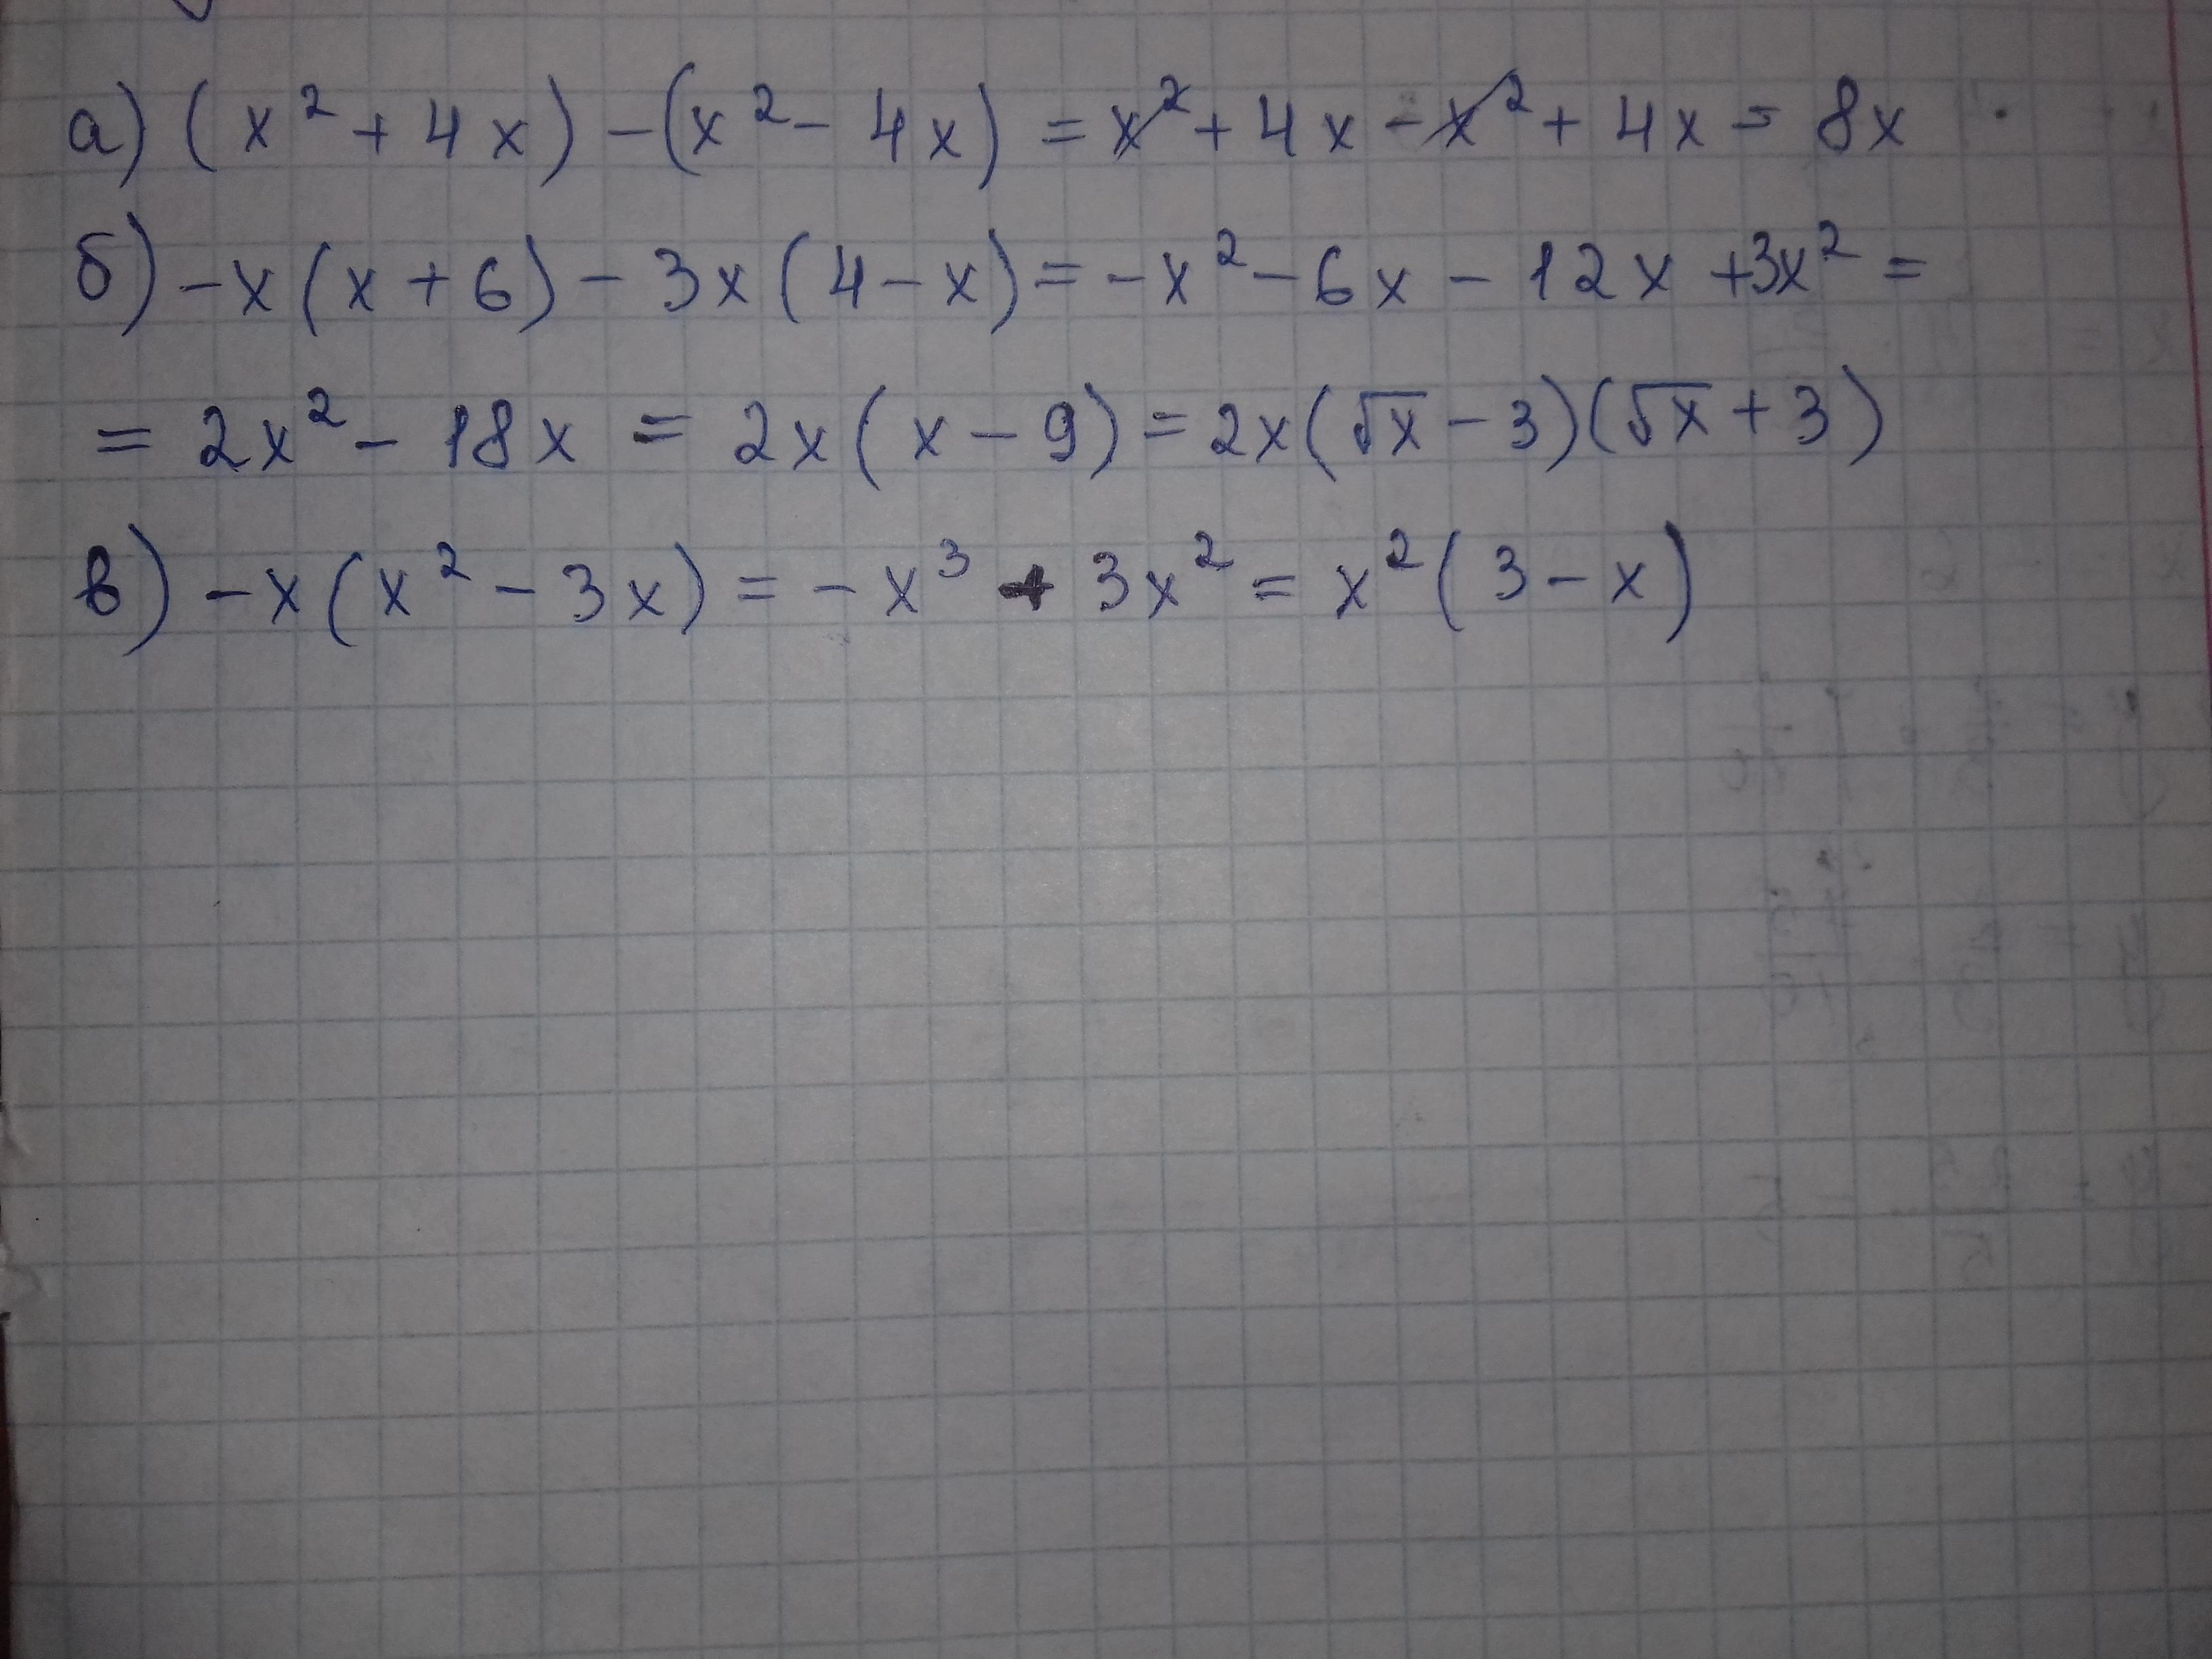 а) (x² + 4x) - (x² - 4x) = x² + 4x - x² + 4x = 8x
б) -x(x + 6) - 3x(4 - x) = -x² - 6x - 12x + 3x² =
= 2x² - 18x = 2x(x - 9) = 2x(√x - 3)(√x + 3)
в) -x(x² - 3x) = -x³ + 3x² = x²(3 - x)